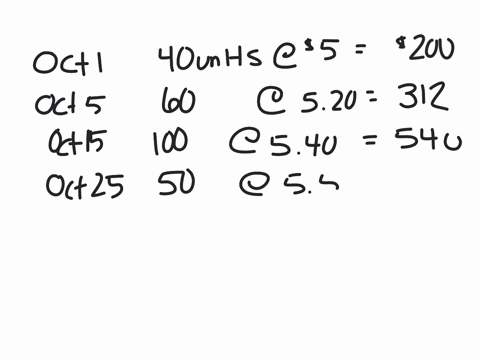 Oct 1 40 units @ $5 = $200
Oct 5 60 @ 5.20 = 312
Oct 15 100 @ 5.40 = 540
Oct 25 50 @ 5.